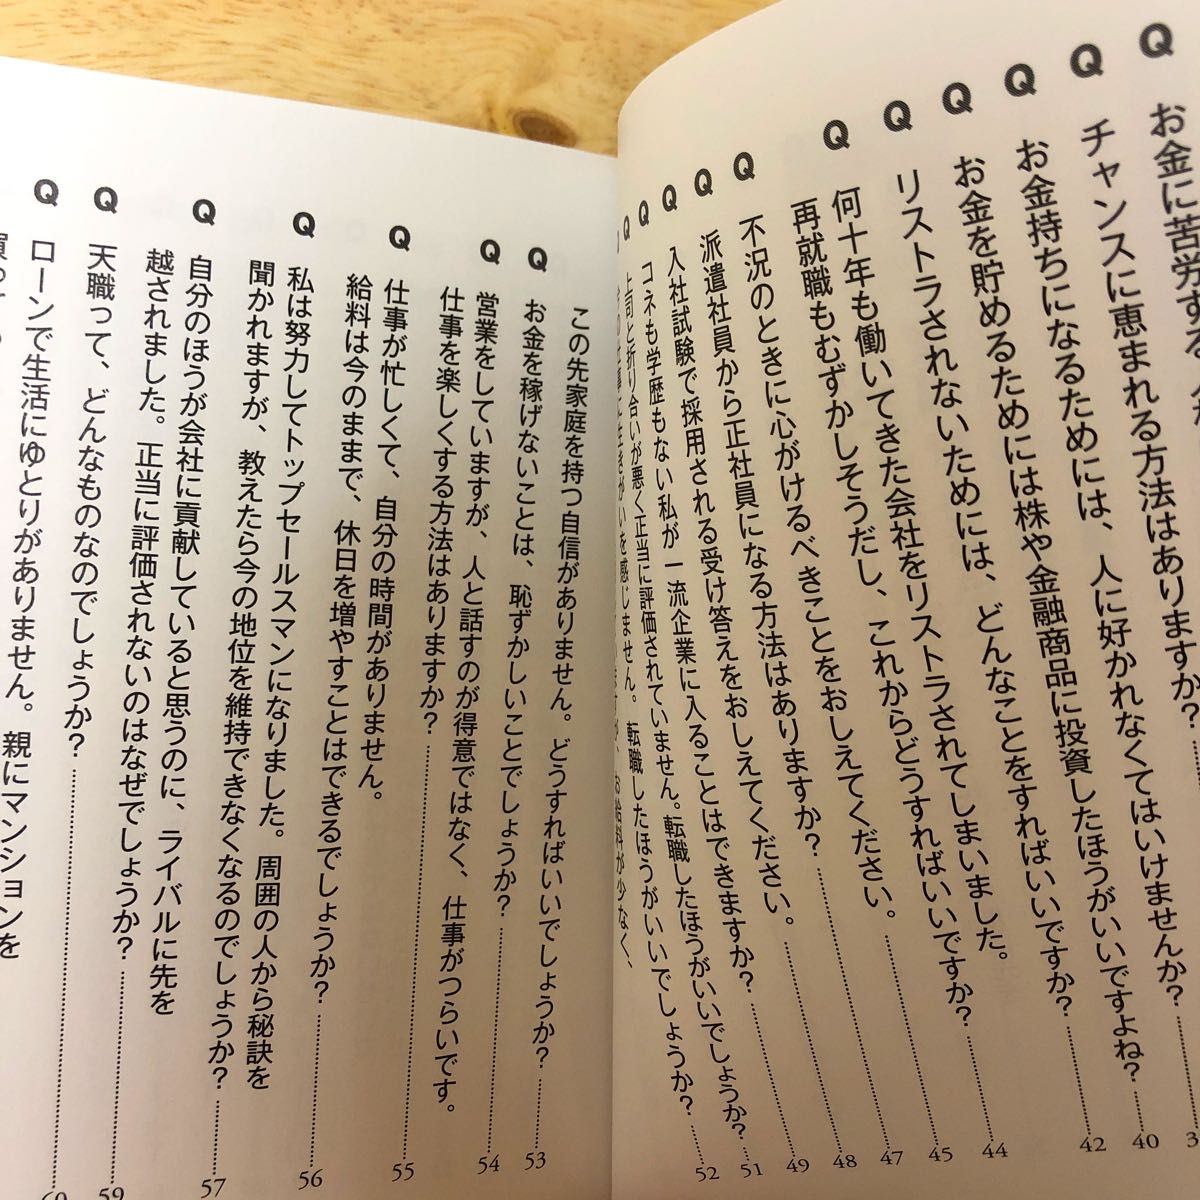 Q お金に苦労する
Q チャンスに恵まれる方法はありますか?
Q お金持ちになるためには、人に好かれなくてはいけませんか? 3
Q お金を貯めるためには株や金融商品に投資したほうがいいですよね? 40
Q リストラされないためには、どんなことをすればいいですか? 42
Q 何十年も働いてきた会社をリストラされてしまいました。
再就職もむずかしそうだし、これからどうすればいいですか? 44
Q 不況のときに心がけるべきことをおしえてください。 45
Q 派遣社員から正社員になる方法はありますか? 47
Q 入社試験で採用される受け答えをおしえてください。 48
Q コネも学歴もない私が一流企業に入ることはできますか? 49
Q 上司と折り合いが悪く正当に評価されていません。転職したほうがいいでしょうか? 51
仕事に生きがいを感じません。転職したほうがいいでしょうか? 52
お給料が少なく、
この先家庭を持つ自信がありません。どうすればいいでしょうか? 53
Q お金を稼げないことは、恥ずかしいことでしょうか? 54
Q 営業をしていますが、人と話すのが得意ではなく、仕事がつらいです。
仕事を楽しくする方法はありますか? 55
Q 仕事が忙しくて、自分の時間がありません。
給料は今のままで、休日を増やすことはできるでしょうか? 56
Q 私は努力してトップセールスマンになりました。周囲の人から秘訣を
聞かれますが、教えたら今の地位を維持できなくなるのでしょうか? 57
Q 自分のほうが会社に貢献していると思うのに、ライバルに先を
越されました。正当に評価されないのはなぜでしょうか? 59
Q 天職って、どんなものなのでしょうか? 60
Q ローンで生活にゆとりがありません。親にマンションを